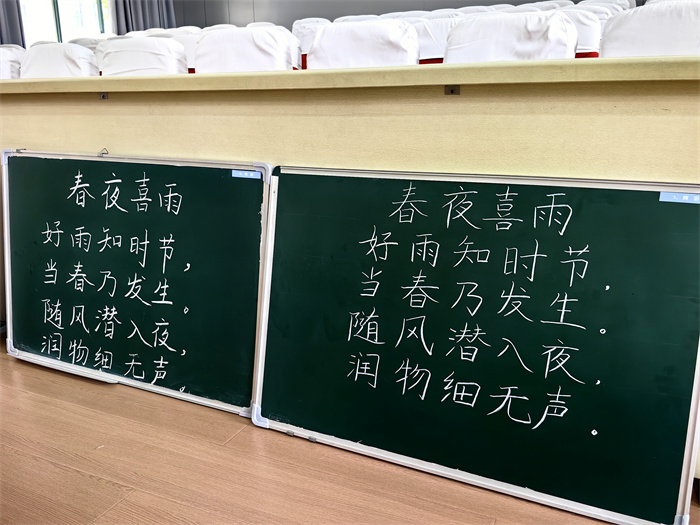 春夜喜雨
好雨知时节，
当春乃发生。
随风潜入夜，
润物细无声。
春夜喜雨
好雨知时节，
当春乃发生。
随风潜入夜，
润物细无声。